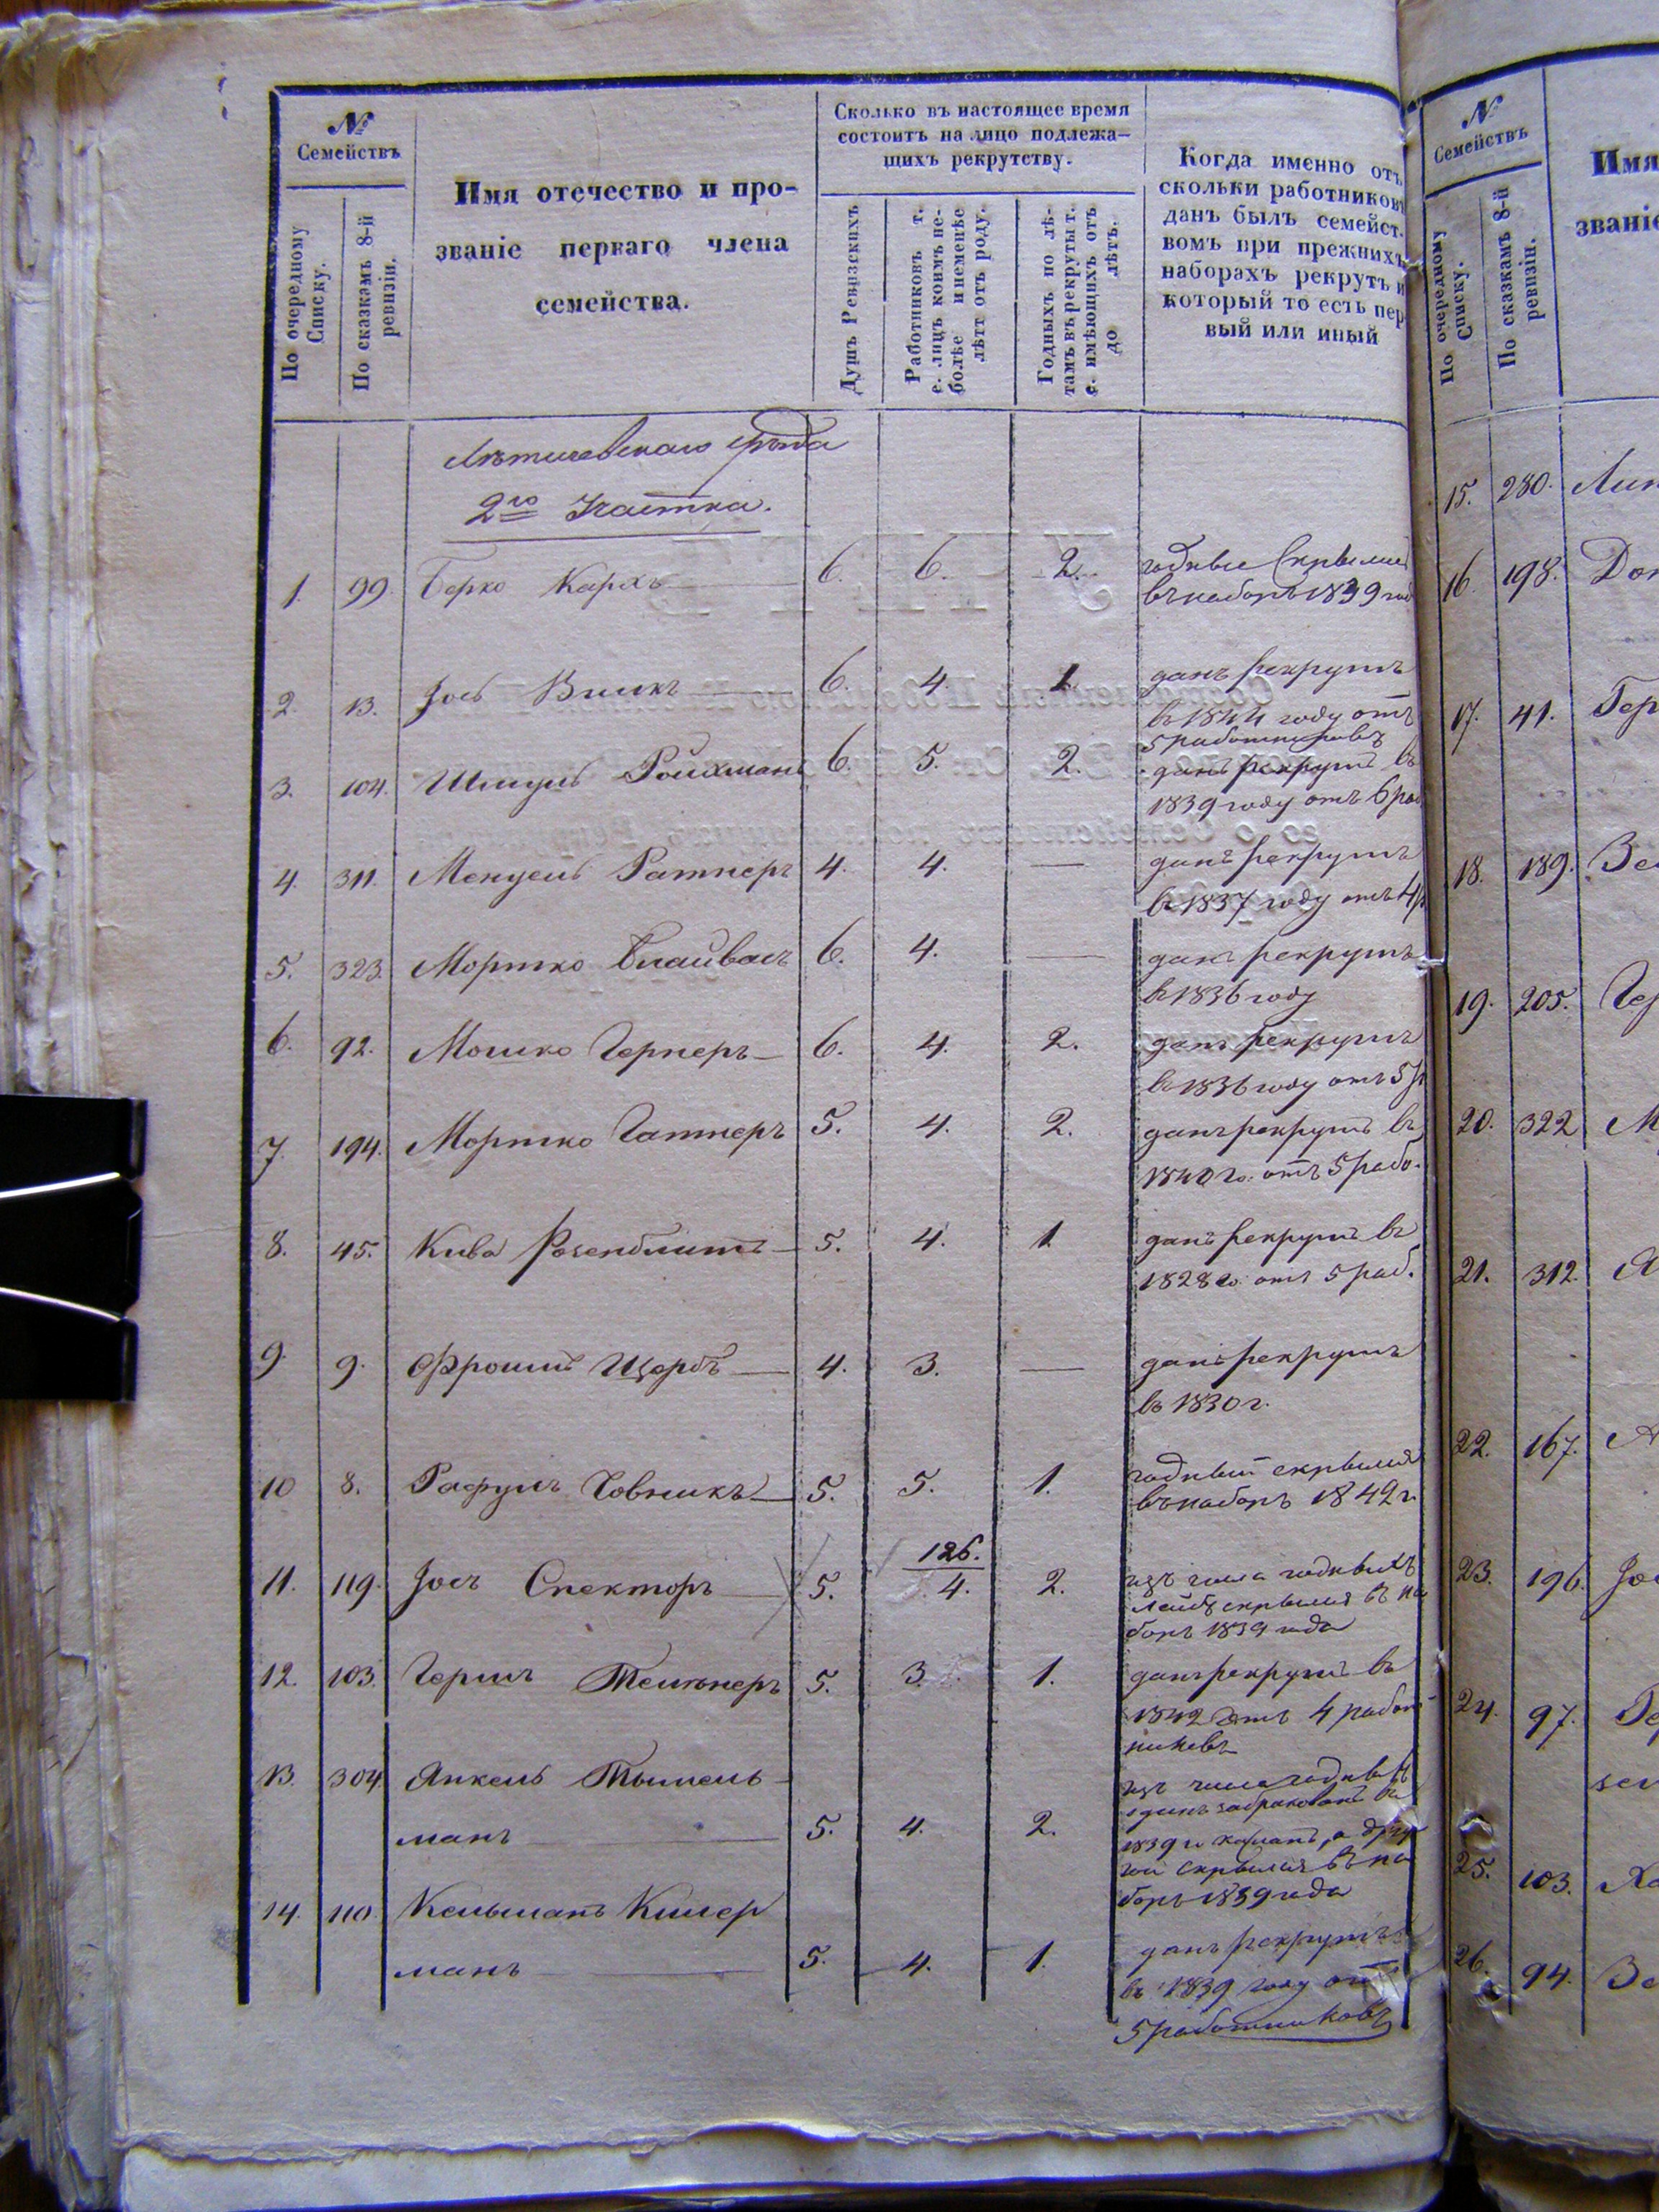 №
Семействъ
По очередному
Списку.
По сказкамъ 8-й
ревизіи.
Имя отечество и про-
званіе перваго члена
семейства.
Сколько въ настоящее время
состоитъ на лицо подлежа-
щихъ рекрутству.
Душъ Ревизскихъ
Работниковъ т.
е. лицъ коимъ не-
болѣе и неменѣе
лѣтъ отъ роду.
Годныхъ по лѣ-
тамъ въ рекруты т.
е. имѣющихъ отъ
до лѣтъ.
Когда именно отъ
скольки работниковъ
данъ былъ семейст-
вомъ при прежнихъ
наборахъ рекрутъ и
который то есть пер
вый или иный
Летичевскаго
2го Участка.
1. 99. Берко 6. 6. 2. годные скрылись
въ наборъ 1839 год
2. 13. Іось 6. 4. 1. данъ рекрутъ
въ 1844 году отъ
5 работниковъ
3. 104. Шмуль Ройхманъ 6. 5. 2. данъ рекрутъ въ
1839 году отъ 6 раб
4. 311. Мендель Ратнеръ 4. 4. — данъ рекрутъ
въ 1837 году отъ 4 р
5. 323. Мортко 6. 4. — данъ рекрутъ
въ 1836 году
6. 92. Мошко Гернеръ 6. 4. 2. данъ рекрутъ
въ 1836 году отъ 5 р
7. 194. Мортко 5. 4. 2. данъ рекрутъ въ
1840 го. отъ 5 рабо.
8. 45. Кива Розенблитъ 5. 4. 1 данъ рекрутъ въ
1828 го. отъ 5 раб.
9. 9. Фроимъ Щербъ 4. 3. — данъ рекрутъ
въ 1830 г.
10 8. Рафулъ 5. 5. 1. годный скрылся
въ наборъ 1842 г.
11. 119. Іось Спекторъ 5. 126. 4. 2. изъ числа годныхъ
Лейбъ скрылся въ на
боръ 1839 года
12. 103. Гершъ 5. 3. 1. данъ рекрутъ въ
1842 отъ 4 работ
никовъ
13. 304 Янкель Тышель-
манъ 5. 4. 2. изъ числа годныхъ
одинъ забракованъ въ
1839 г. а дру
гой скрылся въ на
боръ 1839 года
14. 110. Кельманъ Кимер
манъ 5. 4. 1. данъ рекрутъ
въ 1839 году от
5 работниковъ
№
Семействъ
По очередному
Списку.
По сказкамъ 8-й
ревизіи.
Имя
званіе
15. 280.
16. 198.
17. 41. Гер
18. 189. Зе
19. 205.
20. 322 М
21. 312.
22. 167.
23. 196. Іос
24. 97.
25. 103.
26. 94. Зе